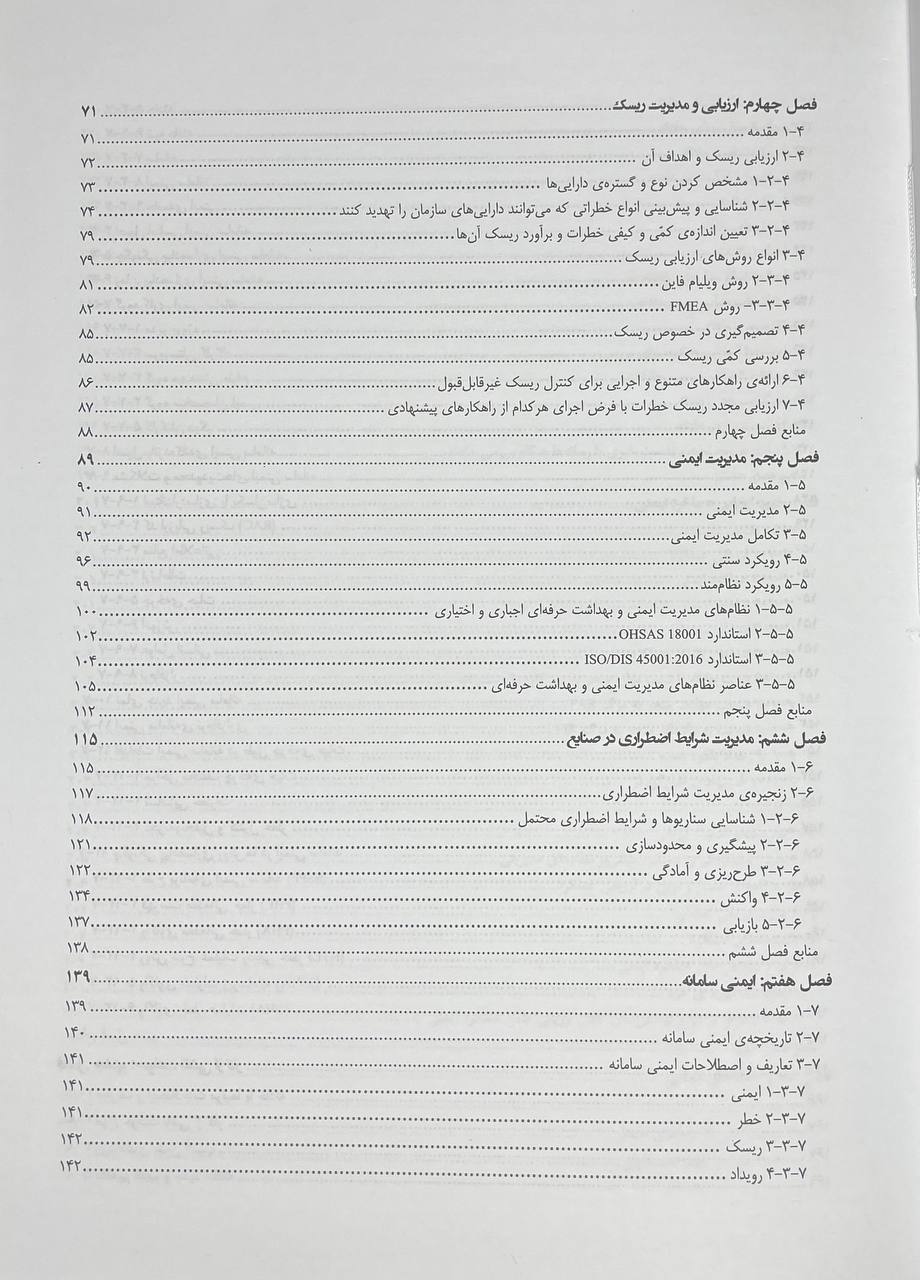 فصل چهارم: ارزیابی و مدیریت ریسک ........ ۷۱
۴-۱ مقدمه ........ ۷۱
۴-۲ ارزیابی ریسک و اهداف آن ........ ۷۲
۴-۲-۱ مشخص کردن نوع و گستره‌ی دارایی‌ها ........ ۷۳
۴-۲-۲ شناسایی و پیش‌بینی انواع خطراتی که می‌توانند دارایی‌های سازمان را تهدید کنند ........ ۷۴
۴-۲-۳ تعیین اندازه‌ی کمّی و کیفی خطرات و برآورد ریسک آن‌ها ........ ۷۹
۴-۳ انواع روش‌های ارزیابی ریسک ........ ۷۹
۴-۳-۲ روش ویلیام فاین ........ ۸۱
۴-۳-۳- روش FMEA ........ ۸۲
۴-۴ تصمیم‌گیری در خصوص ریسک ........ ۸۵
۴-۵ بررسی کمّی ریسک ........ ۸۵
۴-۶ ارائه‌ی راهکارهای متنوع و اجرایی برای کنترل ریسک غیرقابل‌قبول ........ ۸۶
۴-۷ ارزیابی مجدد ریسک خطرات با فرض اجرای هرکدام از راهکارهای پیشنهادی ........ ۸۷
منابع فصل چهارم ........ ۸۸
فصل پنجم: مدیریت ایمنی ........ ۸۹
۵-۱ مقدمه ........ ۹۰
۵-۲ مدیریت ایمنی ........ ۹۱
۵-۳ تکامل مدیریت ایمنی ........ ۹۲
۵-۴ رویکرد سنتی ........ ۹۶
۵-۵ رویکرد نظام‌مند ........ ۹۹
۵-۵-۱ نظام‌های مدیریت ایمنی و بهداشت حرفه‌ای اجباری و اختیاری ........ ۱۰۰
۵-۵-۲ استاندارد OHSAS 18001 ........ ۱۰۲
۵-۵-۳ استاندارد ISO/DIS 45001:2016 ........ ۱۰۴
۵-۵-۳ عناصر نظام‌های مدیریت ایمنی و بهداشت حرفه‌ای ........ ۱۰۵
منابع فصل پنجم ........ ۱۱۲
فصل ششم: مدیریت شرایط اضطراری در صنایع ........ ۱۱۵
۶-۱ مقدمه ........ ۱۱۵
۶-۲ زنجیره‌ی مدیریت شرایط اضطراری ........ ۱۱۷
۶-۲-۱ شناسایی سناریوها و شرایط اضطراری محتمل ........ ۱۱۸
۶-۲-۲ پیشگیری و محدودسازی ........ ۱۲۱
۶-۲-۳ طرح‌ریزی و آمادگی ........ ۱۲۲
۶-۲-۴ واکنش ........ ۱۳۴
۶-۲-۵ بازیابی ........ ۱۳۷
منابع فصل ششم ........ ۱۳۸
فصل هفتم: ایمنی سامانه ........ ۱۳۹
۷-۱ مقدمه ........ ۱۳۹
۷-۲ تاریخچه‌ی ایمنی سامانه ........ ۱۴۰
۷-۳ تعاریف و اصطلاحات ایمنی سامانه ........ ۱۴۱
۷-۳-۱ ایمنی ........ ۱۴۱
۷-۳-۲ خطر ........ ۱۴۱
۷-۳-۳ ریسک ........ ۱۴۲
۷-۳-۴ رویداد ........ ۱۴۲